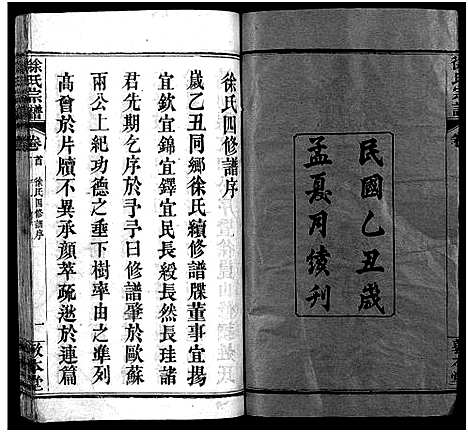 民國乙丑歲
孟夏月續刊
徐氏四修譜序
歲乙丑同鄉徐氏續修譜牒董事宜揚
宜欽宜錦宜鐸宜民長綬長然長珪諸
君先期乞序於予予曰修譜肇於歐蘇
兩公上紀功德之垂下樹率由之準列
高曾於片牘不異承顏萃疏逖於連篇
徐氏宗譜
卷首
徐氏四修譜序
一
敦本堂